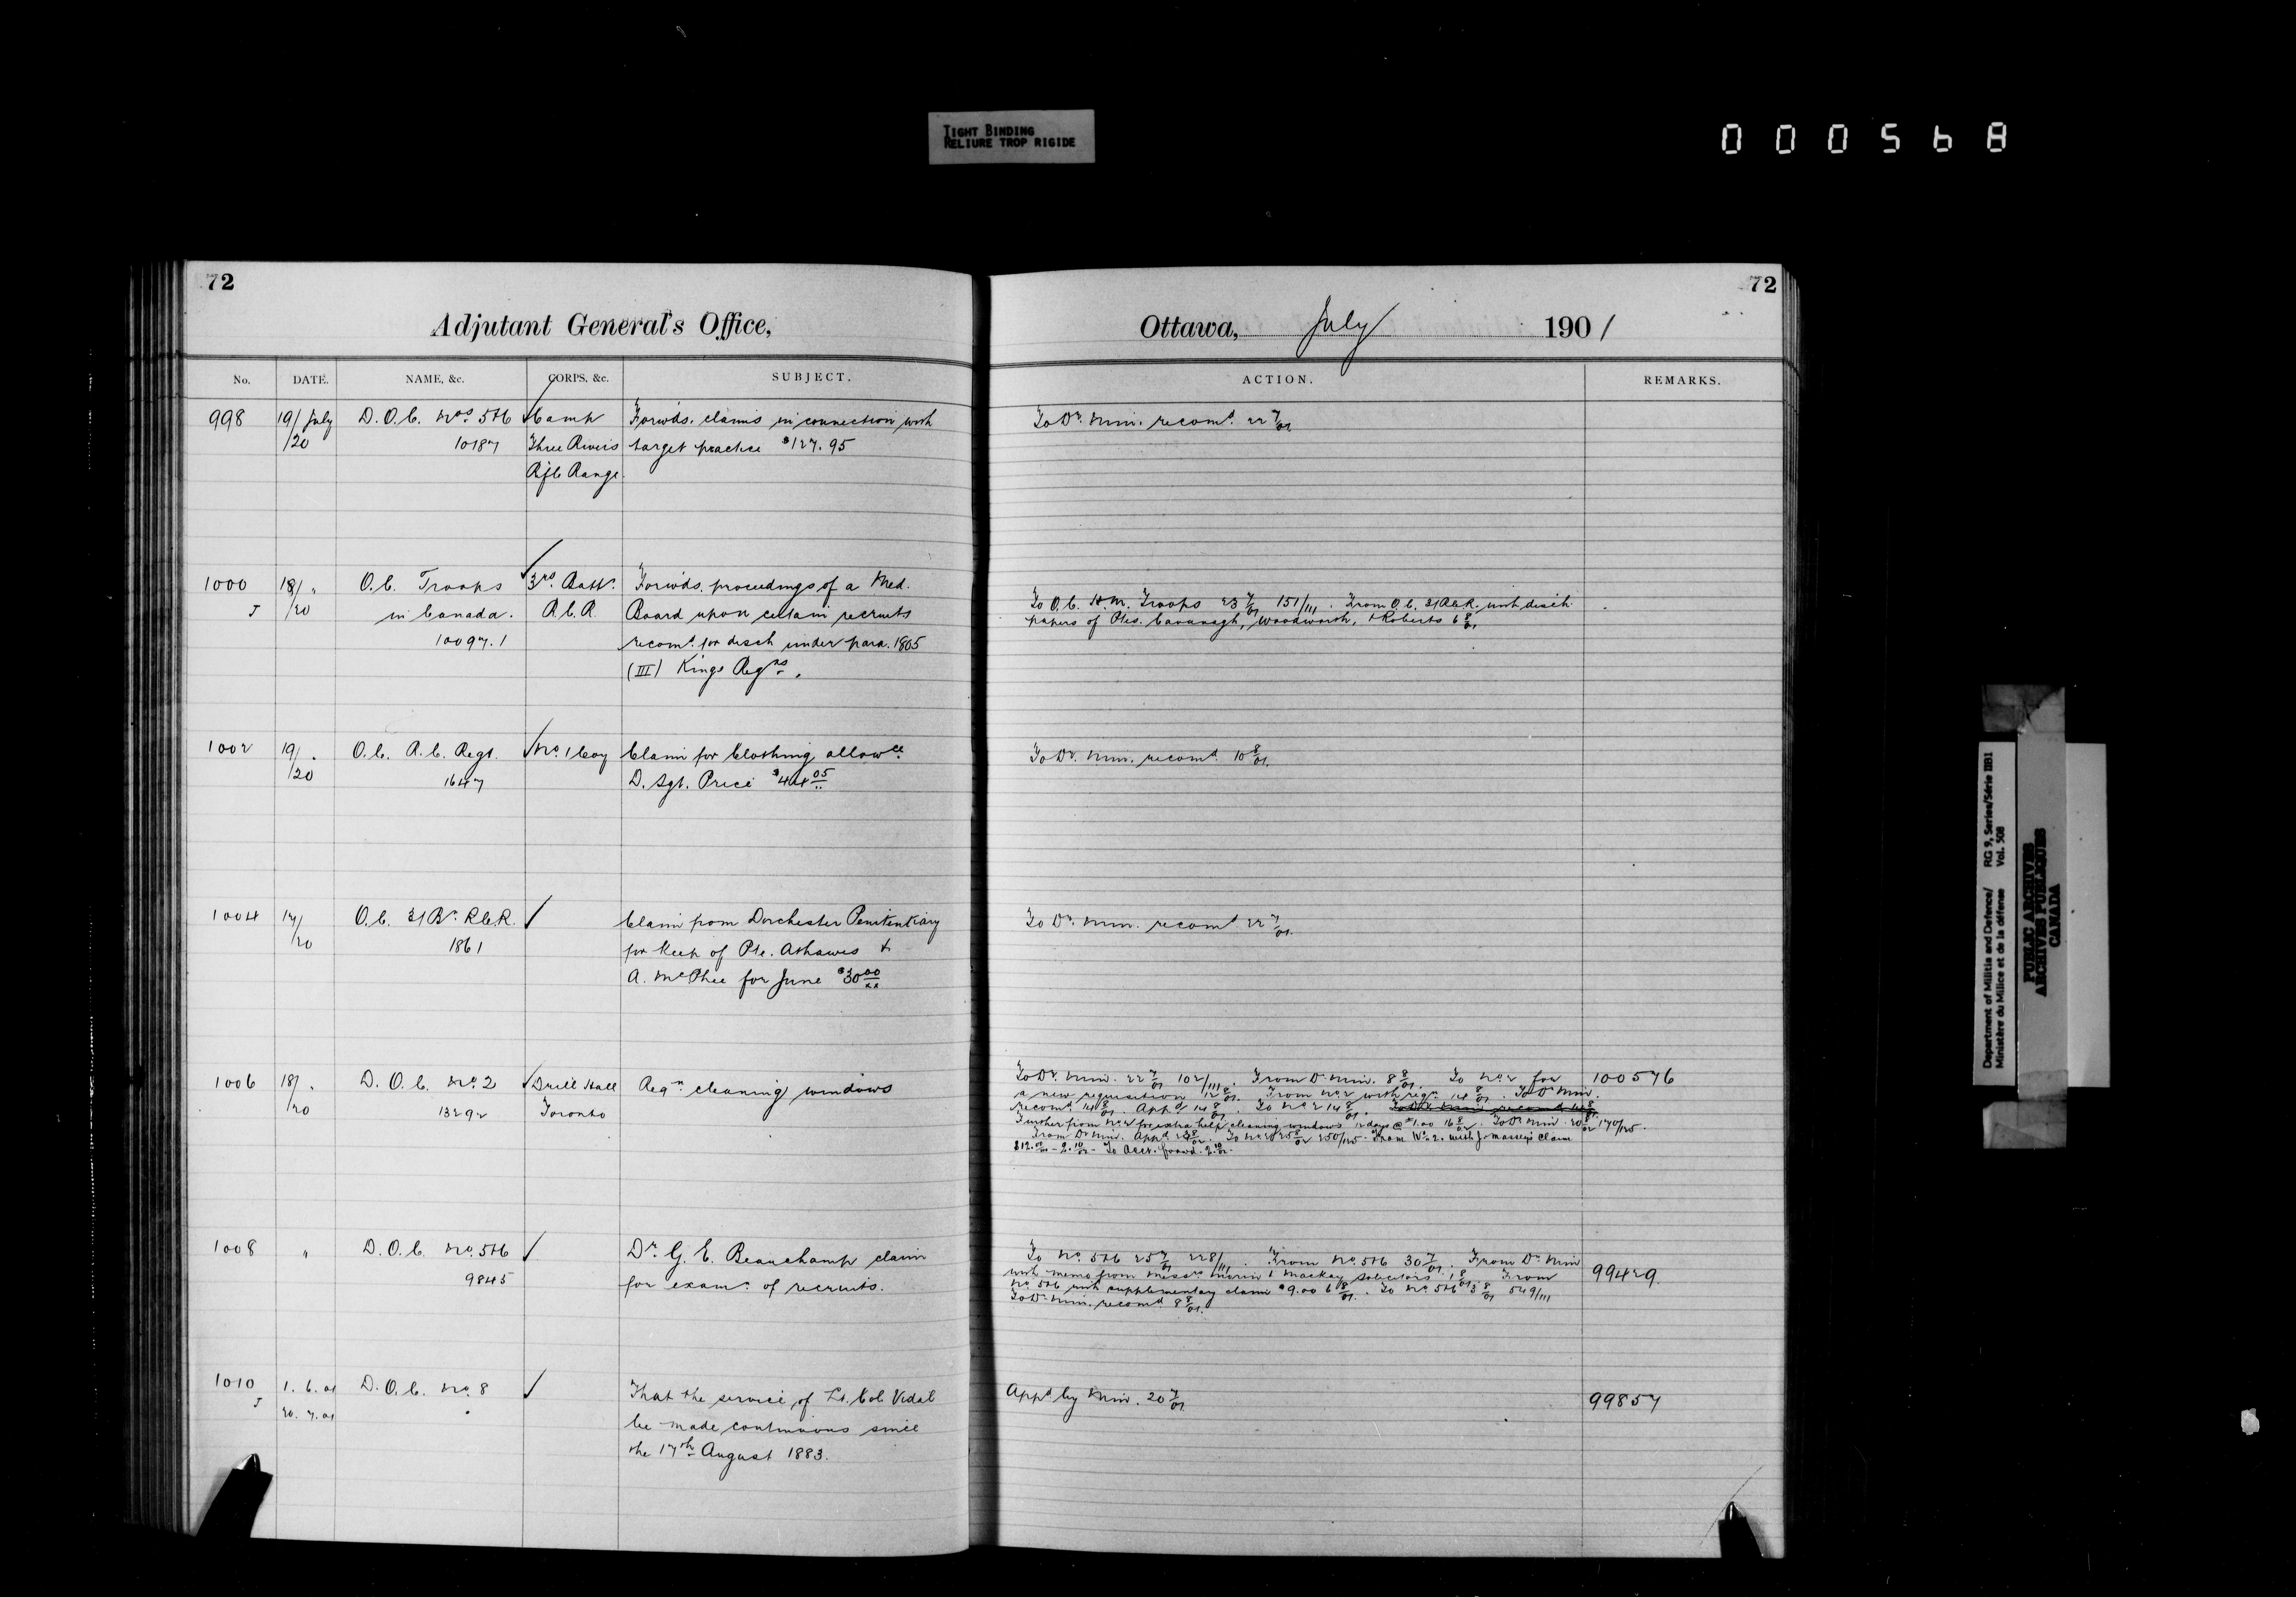 TIGHT BINDING
RELIURE TROP RIGIDE
000568
72
Adjutant General's Office,
No. DATE. NAME, &c. CORPS, &c. SUBJECT.
998 19/ July D.O.C. Nos. 5+6 Camp Forwds. claims in connection with
/20 10187 Three Rivers target practice $127.95
Rifle Range.
1000 18/ " O.C. Troops 3rd. Batt. Forwds. proceedings of a Med.
J /20 in Canada. R.C.R. Board upon certain recruits
10097.1 recomd. for disch under para. 1805
(III) Kings Regns.
1002 19/ " O.C. R.C. Regt. No. 1 Coy Claim for Clothing allowce.
/20 1647 D. Sgt. Price $44.05
1004 17/ O.C. 3/Bn. R.C.R. Claim from Dorchester Penitentiary
/20 1861 for keep of Pte. &
A. McPhee for June $30.00
1006 18/ " D.O.C. No. 2 Drill Hall Reqn. cleaning windows
/20 13292 Toronto
1008 " D.O.C. No. 5+6 Dr. G. E. Beauchamp claim
9845 for examn. of recruits.
1010 1.6.01 D.O.C. No. 8 That the service of Lt. Col. Vidal
J 20.7.01 be made continuous since
the 17th August 1883.
72
Ottawa, July 1901
ACTION. REMARKS.
To Dy. Min. recomd. 22 7/01.
To O.C. H.M. Troops 23 7/01 151/111. From O.C. 3/R.C.R. with disch.
papers of Ptes. Cavanagh, Woodworth, & Roberts 6 8/01
To Dy. Min. recomd. 10 8/01.
To Dy. Min. recomd 22 7/01.
To Dy. Min. 22 7/01 102/111. From Dy. Min. 8 8/01. To No. 2 for 100576
a new requisition 12 8/01. From No. 2 with reqn. 14 8/01. To Dy. Min.
recomd. 14 8/01. Appd. 14 8/01. To No. 2 14 8/01. To Dy. Min. recomd 14 8/01.
Further from No. 2 for extra help cleaning windows 12 days @ $1.00 16 8/02. To Dy. Min. 20 8/02 170/125.
From Dy. Min. Appd. 8/02. To No. 2 25 8/02 250/125. From No. 2. with J. Massey's Claim
$12.00 - 2.10/02 - To Acct. forwd. 2.10/02.
To No. 5+6 25 7/01 228/111. From No. 5+6 30 7/01. From Dy. Min
with memo from Messrs. & Mackay Solicitors 1 8/01. From 99429
No. 5+6 with supplementary claim $9.00 6 8/01. To No. 5+6 3 8/01 549/111
To Dy. Min. recomd 8 8/01.
Appd. by Min. 20 7/01. 99857
Department of Militia and Defence/ RG 9, Series/Série IIB1
Ministère du Milice et de la défense Vol. 508
PUBLIC ARCHIVES
ARCHIVES PUBLIQUES
CANADA